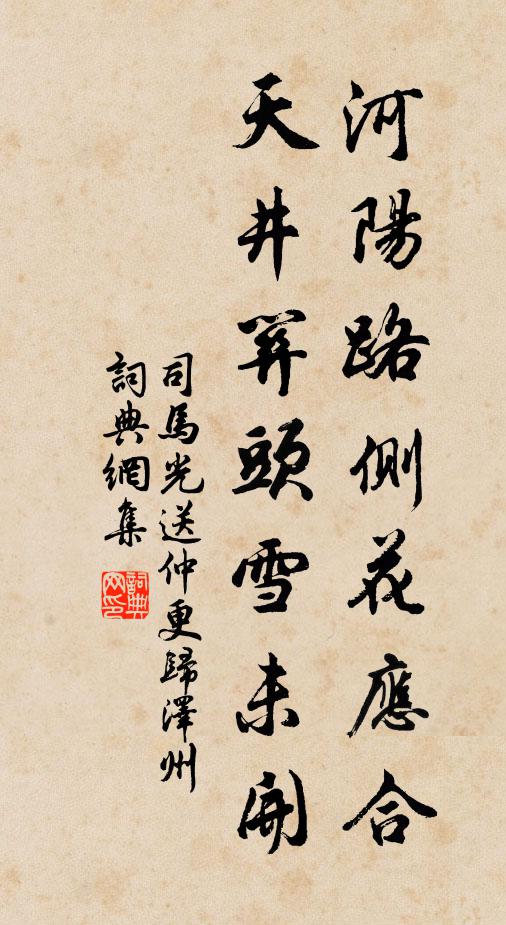 河陽路側花應合
天井關頭雪未開
司馬光送仲更歸澤州
詞典網集
詞典网印